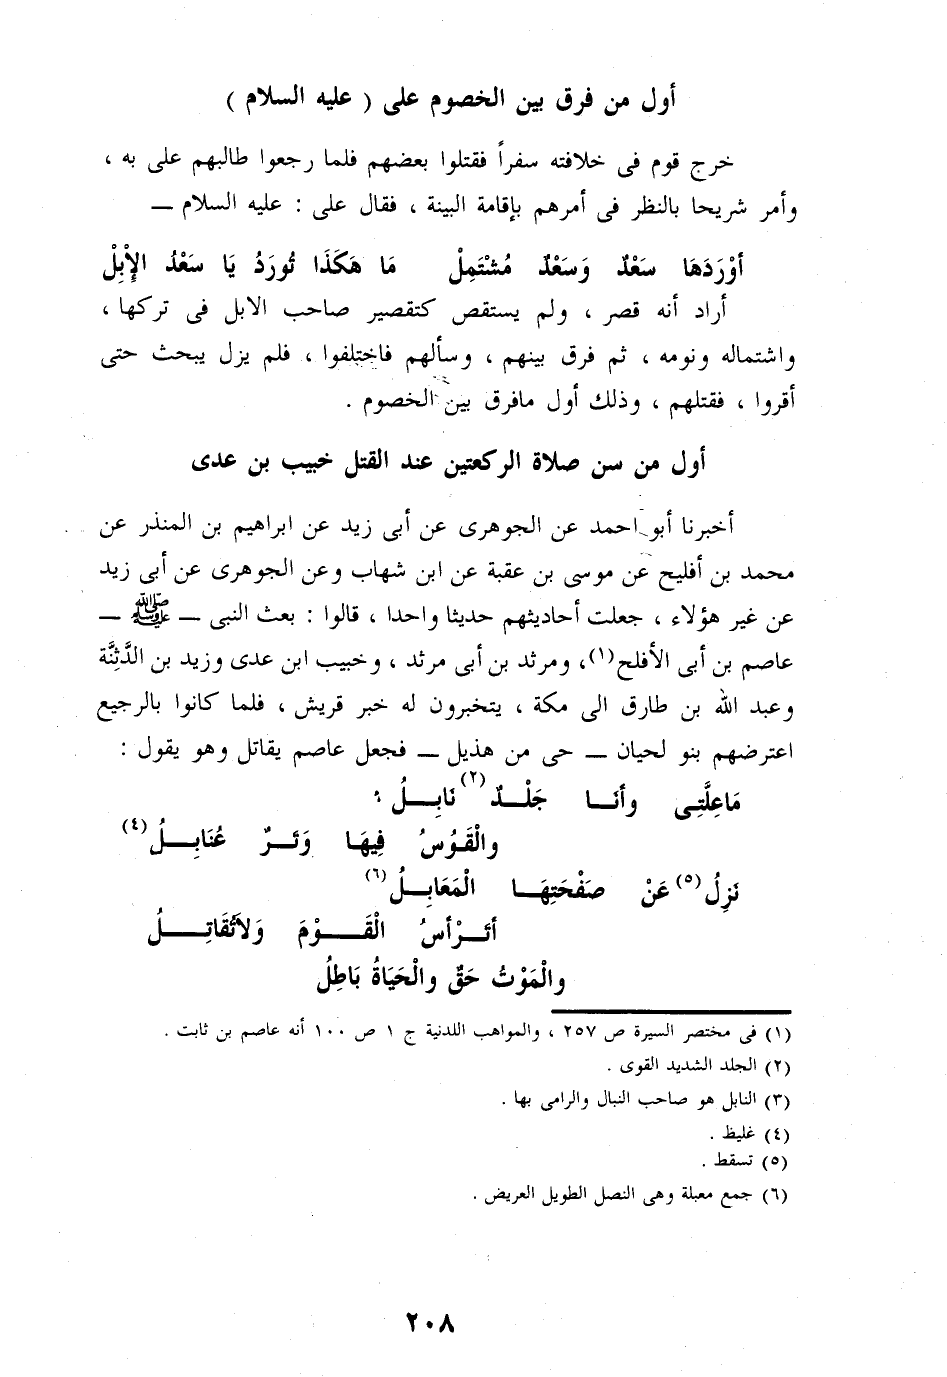 أول من فرق بين الخصوم على ( عليه السلام )
خرج قوم فى خلافته سفراً فقتلوا بعضهم فلما رجعوا طالبهم على به ،
وأمر شريحا بالنظر فى أمرهم بإقامة البينة ، فقال على : عليه السلام —
أوْرَدَهَا سَعْدٌ وَسَعْدٌ مُشْتَمِلْ مَا هَكَذَا تُورَدُ يَا سَعْدُ الإِبْلْ
أراد أنه قصر ، ولم يستقص كتقصير صاحب الابل فى تركها ،
واشتماله ونومه ، ثم فرق بينهم ، وسألهم فاختلفوا ، فلم يزل يبحث حتى
أقروا ، فقتلهم ، وذلك أول مافرق بين الخصوم .
أول من سن صلاة الركعتين عند القتل خبيب بن عدى
أخبرنا أبو احمد عن الجوهرى عن أبى زيد عن ابراهيم بن المنذر عن
محمد بن أفليح عن موسى بن عقبة عن ابن شهاب وعن الجوهرى عن أبى زيد
عن غير هؤلاء ، جعلت أحاديثهم حديثا واحدا ، قالوا : بعث النبى — ﷺ —
عاصم بن أبى الأفلح(١)، ومرثد بن أبى مرثد ، وخبيب ابن عدى وزيد بن الدَّثِنَّة
وعبد الله بن طارق الى مكة ، يتخبرون له خبر قريش ، فلما كانوا بالرجيع
اعترضهم بنو لحيان — حى من هذيل — فجعل عاصم يقاتل وهو يقول :
مَاعِلَّتِى وأنَا جَلْدٌ(٢) نَابِلُ
والْقَوْسُ فِيهَا وَتَرٌ عُنَابِلُ(٤)
نَزِلُ(٥) عَنْ صَفْحَتِهَا الْمَعَابِلُ(٦)
أتَرْأسُ الْقَوْمَ وَلاَتُقَاتِلُ
والْمَوْتُ حَقٌ والْحَيَاةُ بَاطِلُ
(١) فى مختصر السيرة ص ٢٥٧ ، والمواهب اللدنية ج ١ ص ١٠٠ أنه عاصم بن ثابت .
(٢) الجلد الشديد القوى .
(٣) النابل هو صاحب النبال والرامى بها .
(٤) غليظ .
(٥) تسقط .
(٦) جمع معبلة وهى النصل الطويل العريض .
٢٠٨